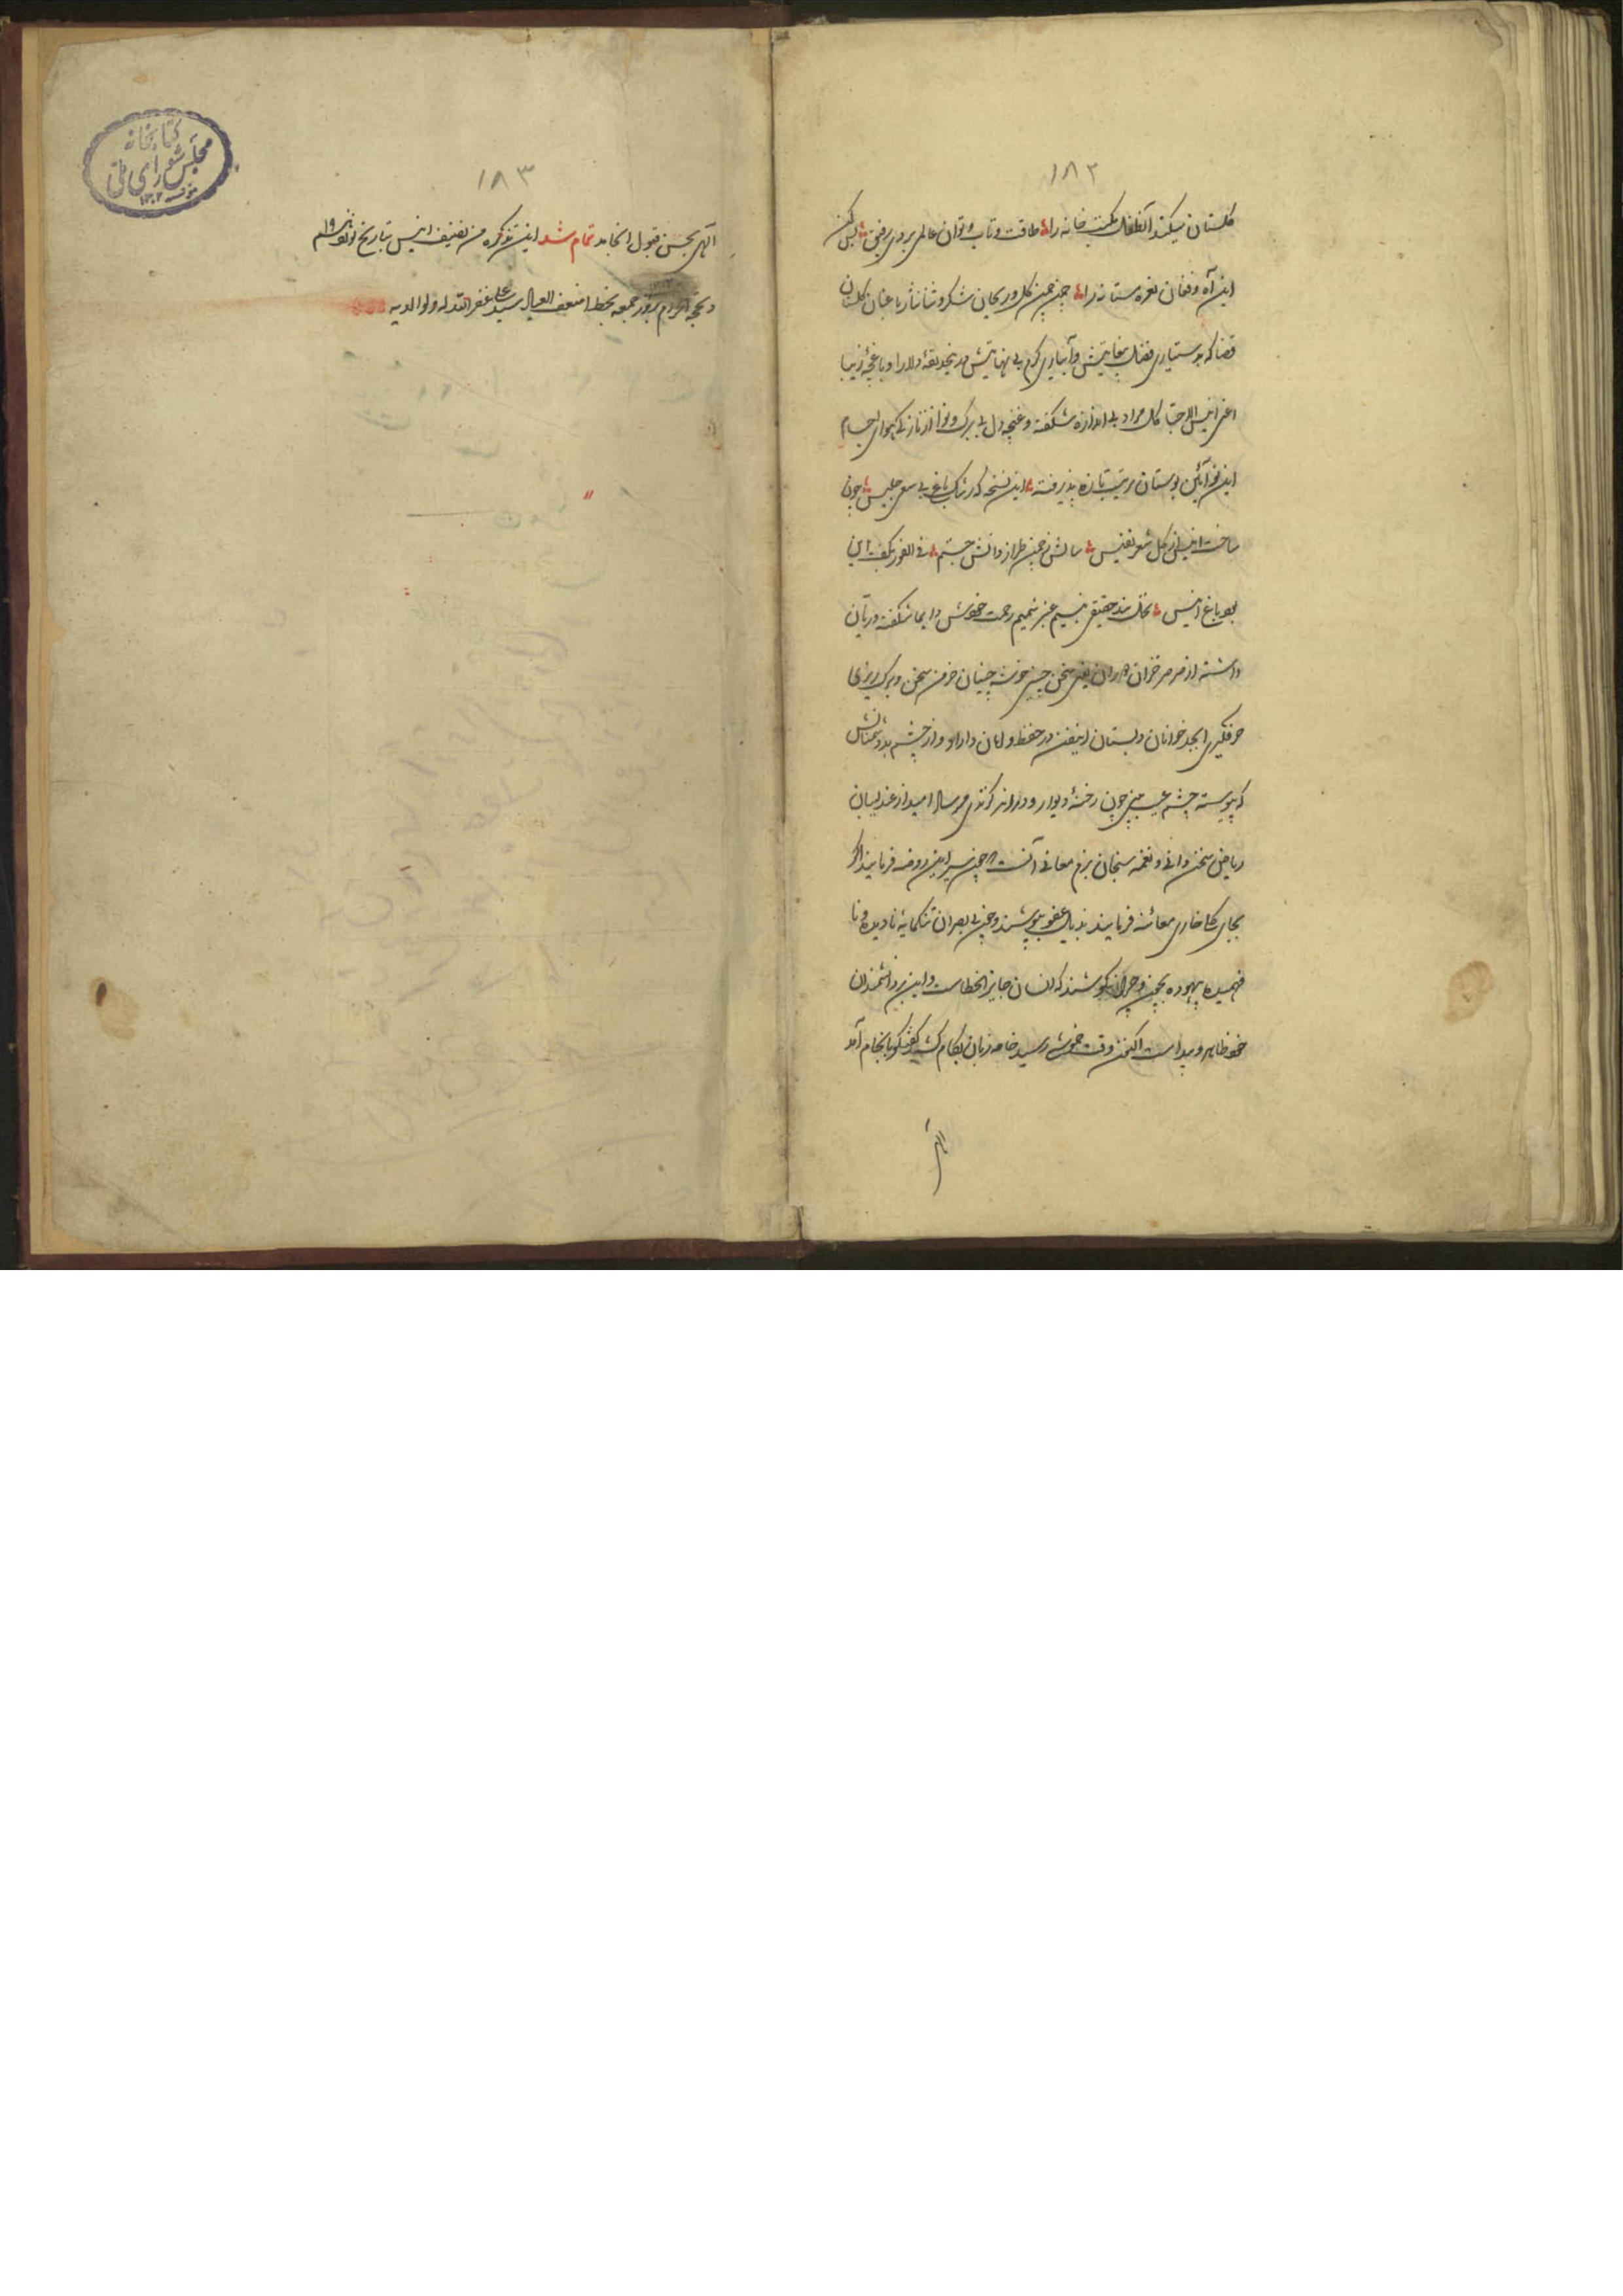 ۱۸۲
گلستان میکند آنطفل مکتب خانه را طاقت و تاب و توان عالمی بردی رفیق بس کن
این آه و فغان نعره مستانه را چمن چمن گل و ریحان شکر و ثنا نثار باغبان گلستان
قضا که بدستیاری فضل بیغایتش و آبیاری کرم بی نهایتش درینحدیقهٔ دلارا و باغچهٔ زیبا
اعنی انیس الاحبا گل مراد بی اندازه شکفته و غنچه دل بی برگ و نوا از تازگی
این نو آئین بوستان زینت تازه پذیرفته این نسخه که رشک باغ بی سعی جلیس چون
ساخت انیس از گل شعر نفیس سالش ز چمن طراز دانش جستم فی الفور بگفت این
بود باغ انیس نخل بند حقیقی بنسیم عنبر شمیم رحمت خویش دایما شکفته و ریان
داشته از صرصر خزان یعنی سخن چینی خوشه چینان خرمن سخن و برگ ریزی
حرفگیری ابجد خوانان دبستان اینفن در حفظ و امان داراد و از چشم بد
که پیوسته چشم عیب بین چون رخنهٔ دیوار و در امید از عندلیبان
ریاض سخن دانی و نغمه سنجان بزم معانی آنست چون سیر این روضه فرمایند اگر
بجای گل خاری معائنه فرمایند بذیل عفو بپوشند و چون بی بصران تنکمایه نادیده و نا
فهمیده بیهوده بچون و چرا نکوشند که انسان جایز الخطاست و این بر دانشمندان
خود ظاهر و پیداست اکنون وقت خموشی رسید خامه زبان بکام کشید گفتگو بانجام آمد
الهی
۱۸۳
الهی بحسن قبول انجامد تمام شد این تذکره من تصنیف انیس بتاریخ
ذیحجة الحرام روز جمعه بخط اضعف العباد سید علی غفر الله له ولوالدیه
کتابخانه
مجلس شورای ملی